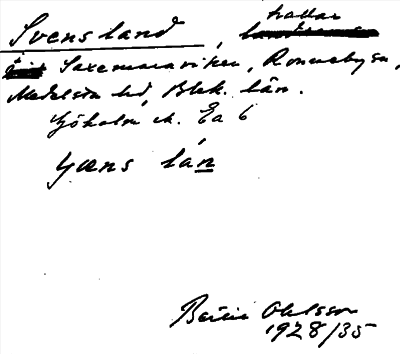 Svensland, hallar
Saxemaraviken, Ronneby sn,
Medelsta hd, Blek. län.
Sjökolm ch. Ea 6
sven`s la´n
Bertil Ohlsson
1928/35